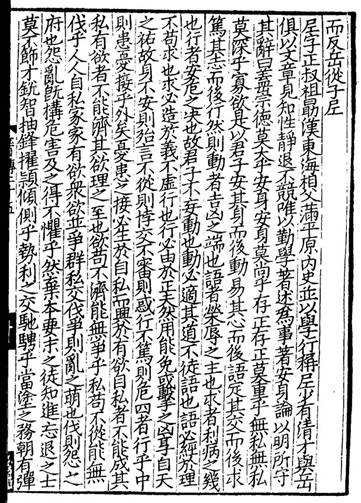 而反岳從子尼
尼字正叔祖勗漢東海相父滿平原内史並以學行稱尼少有清才與岳
俱以文章見知性靜退不競唯以勤學著述爲事著安身論以明所守
其辭曰蓋崇德莫大乎安身安身莫尚乎存正存正莫重乎無私無私
莫深乎寡欲是以君子安其身而後動易其心而後語定其交而後求
篤其志而後行然則動者吉凶之端也語者榮辱之主也求者利病之幾
也行者安危之決也故君子不妄動也動必適其道不徒語也語必經於理
不苟求也求必造於義不虛行也行必由於正夫然用能免或擊之凶享自天
之祐故身不安則殆言不從則悖交不審則惑行不篤則危四者行乎中
則患憂接乎外矣憂患之接必生於自私而興於有欲自私者不能成其
私有欲者不能濟其欲理之至也欲苟不濟能無爭乎私苟不從能無
伐乎人人自私家家有欲衆欲並爭群私交伐爭則亂之萌也伐則怨之
府也怨亂既構危害及之得不懼乎然棄本要末之徒知進忘退之士
莫不飾才銳智抽鋒擢穎傾側乎勢利之交馳騁乎當塗之務朝有彈